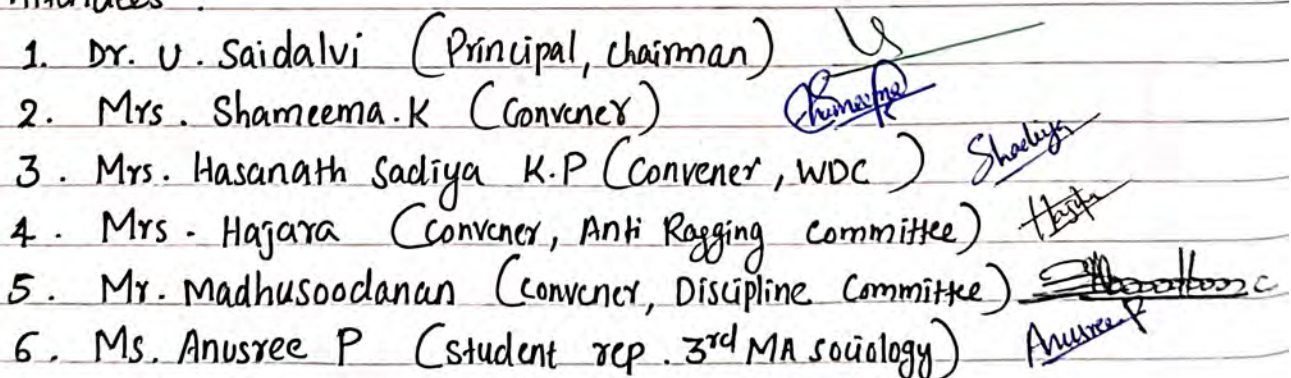 1. Dr. U. Saidalvi (Principal, chairman)
2. Mrs. Shameema.K (Convener) Shameema
3. Mrs. Hasanath Sadiya K.P (Convener, WDC) Shadiya
4. Mrs. Hajara (convener, Anti Ragging committee)
5. Mr. Madhusoodanan (convener, Discipline Committee)
6. Ms. Anusree P (student rep. 3rd MA sociology) Anusree P